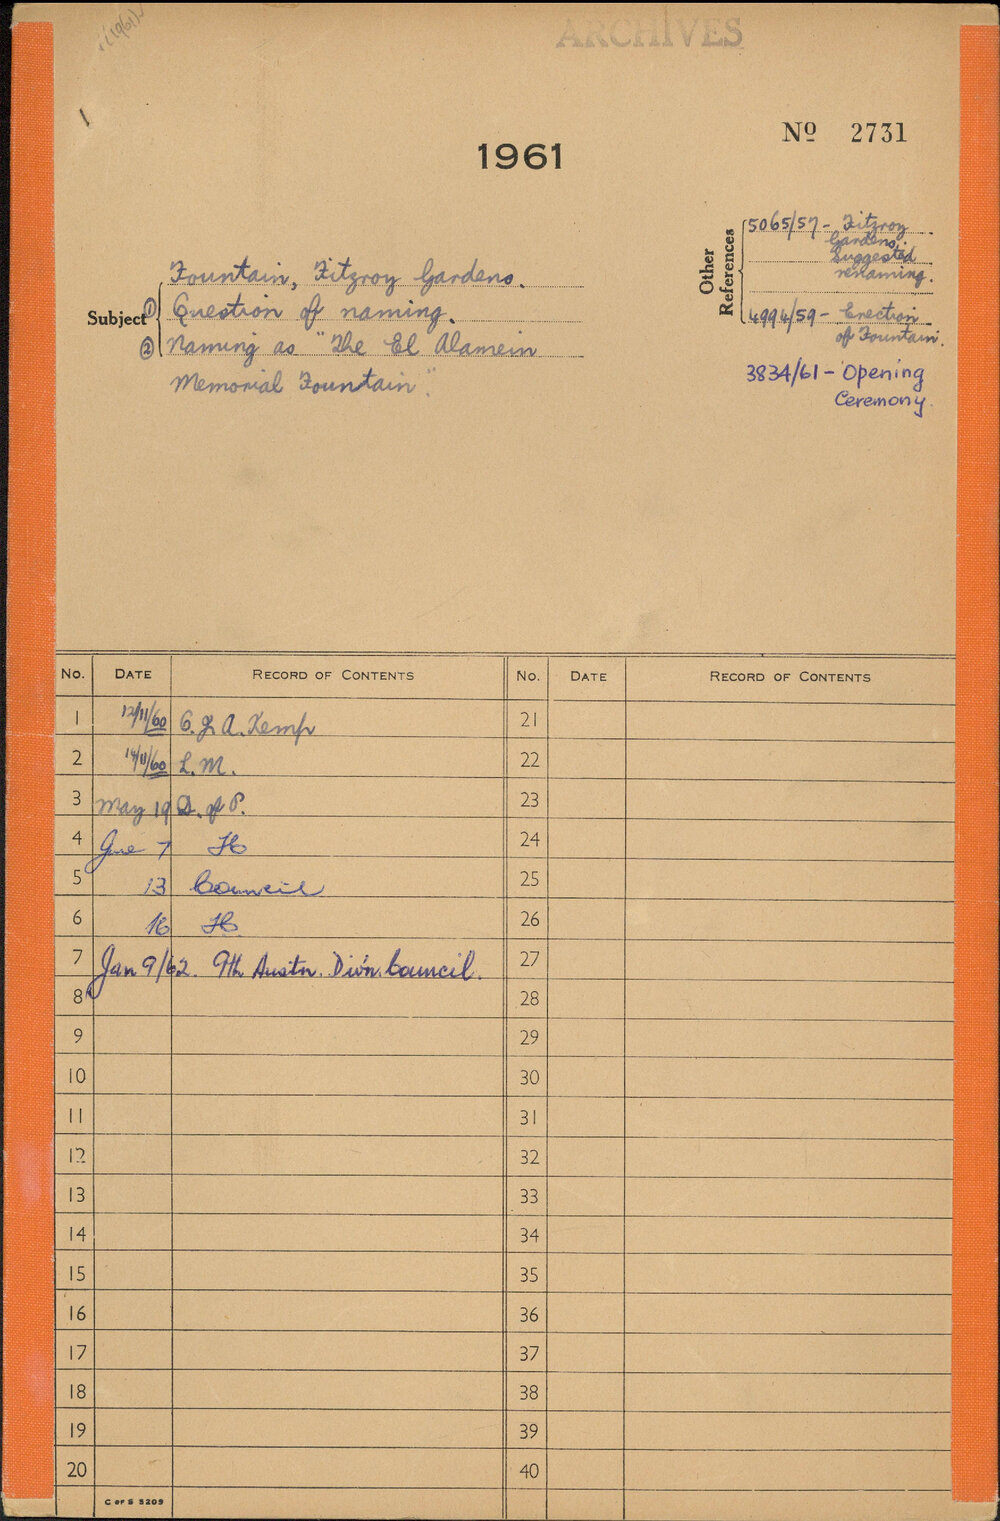 ARCHIVES
1
Nº 2731
1961
Other References
5065/57 - Fitzroy
Gardens.
Suggested
renaming.
4994/59 - Erection
of Fountain.
3834/61 - Opening
Ceremony.
Subject
Fountain, Fitzroy Gardens.
① Question of naming.
② Naming as "The El Alamein
Memorial Fountain".
No. DATE RECORD OF CONTENTS No. DATE RECORD OF CONTENTS
1 12/11/60 A. Kemp 21
2 14/11/60 L. M. 22
3 May 19 D. of P. 23
4 June 7 24
5 13 Council 25
6 16 26
7 Jan 9/62. 9th Austn. Div'n. Council. 27
8 28
9 29
10 30
11 31
12 32
13 33
14 34
15 35
16 36
17 37
18 38
19 39
20 40
C OF S 5209